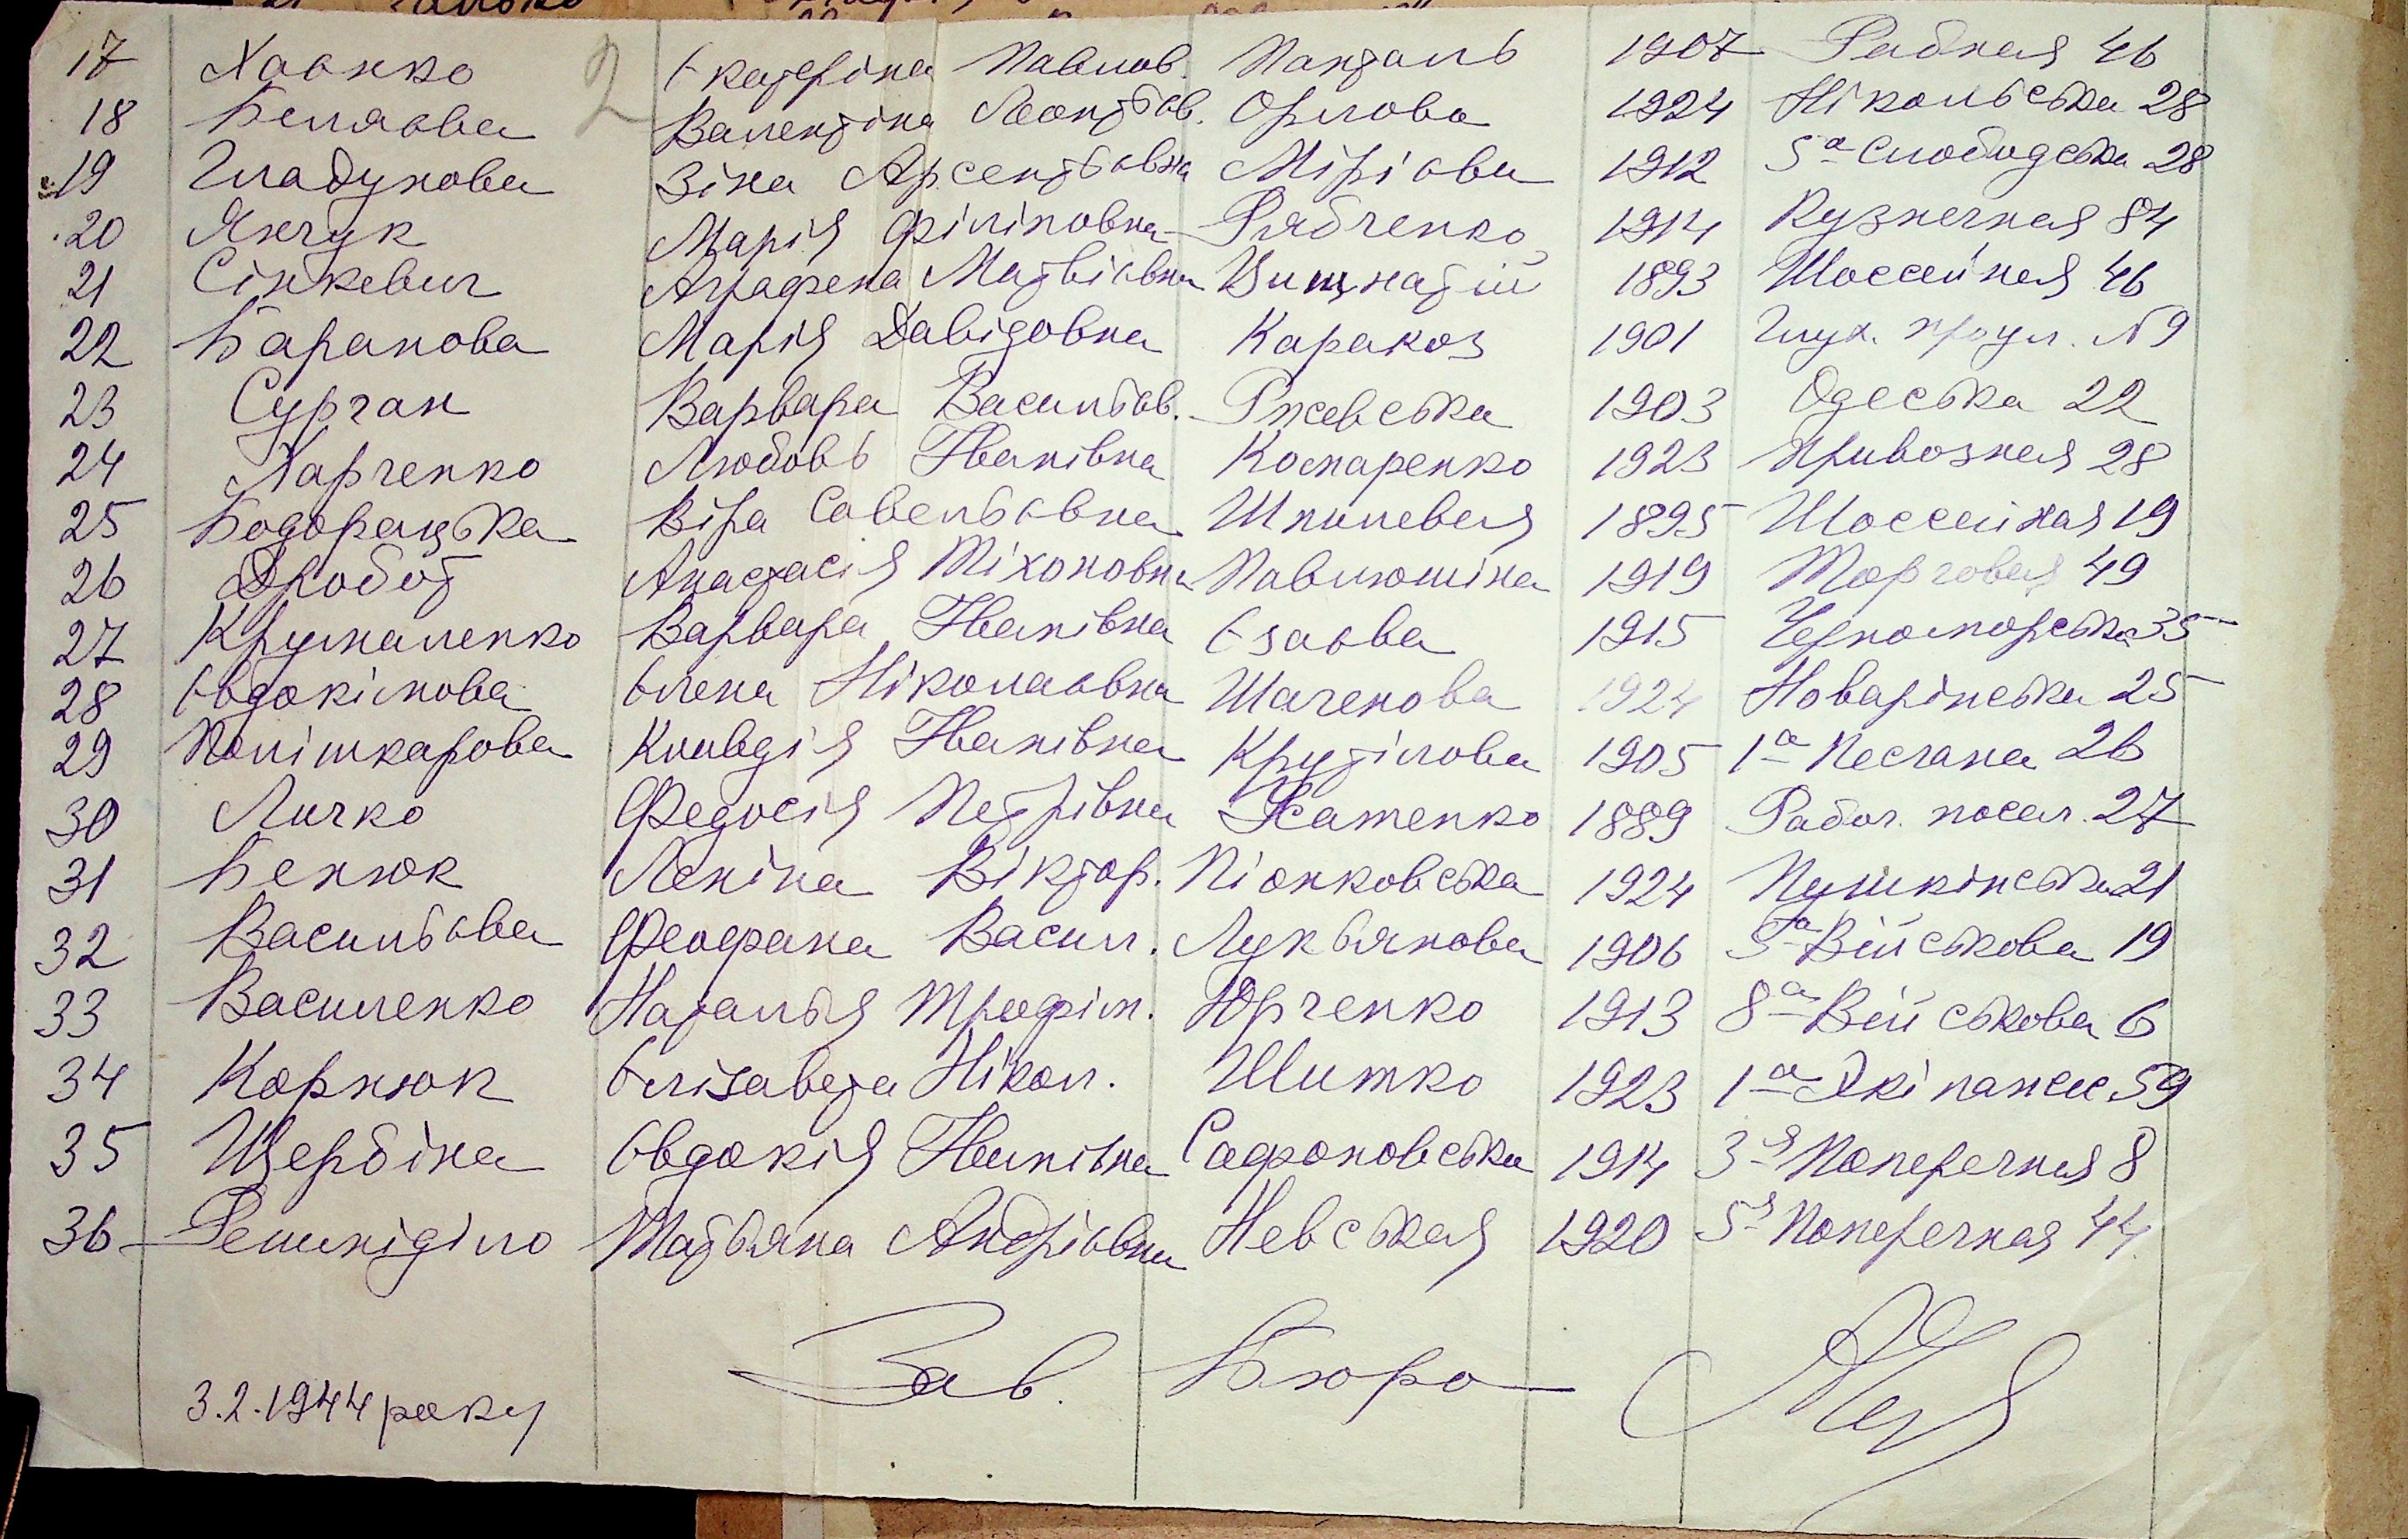 17 Хаєнко Єкатеріна Павлов. Панталь 1907 Рабчая 46
18 Беляєва Валентіна Леонтьєв. Орлова 1924 Нікольська 28
19 Гладунова Зіна Арсентьєвна Мірієва 1912 5а Слободська 28
20 Янчук Марія Філіповна Рябченко 1914 Кузнечная 84
21 Сінкевич Аграфена Матвієвна 1893 Шоссейная 46
22 Баранова Марія Давідовна Каракоз 1901 Глух. проул. N9
23 Сурган Варвара Васильєв. Ржевська 1903 Одеська 22
24 Харченко Любовь Іванівна Комаренко 1923 Привозная 28
25 Бодорацька Віра Савельєвна Шпилевая 1895 Шоссейная 19
26 Дробот Анастасія Тіхоновна Павлюшіна 1919 Торговая 49
27 Крумаленко Варвара Іванівна Єзаєва 1915 Черноморська 35
28 Євдокімова Єлена Ніколаєвна Шаченова 1924 Новарінська 25
29 Полішкарова Клавдія Іванівна Крутілова 1905 1а Песчана 26
30 Личко Федосія Петрівна Усатенко 1889 Рабоч. посел. 27
31 Бенюк Леніна Віктор. Піонковська 1924 Пушкінська 21
32 Васильєва Феофана Васил. Лукьянова 1906 5а Війскова 19
33 Василенко Наталья Трофім. Юрченко 1913 8а Військова 6
34 Корнюк Єлізавета Нікол. Шитко 1923 1а Экіпажск 59
35 Щербіна Євдокія Іванівна Сафроновська 1914 3я Поперечная 8
36 Решиніділо Татьяна Андрієвна Невськая 1920 5я Поперечная 44
Зав. Бюро
3.2.1944 року